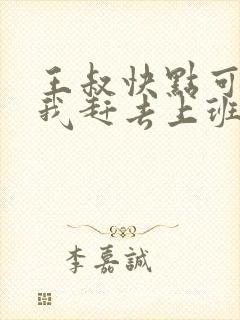 王叔快點可
我赶去上班
李嘉誠